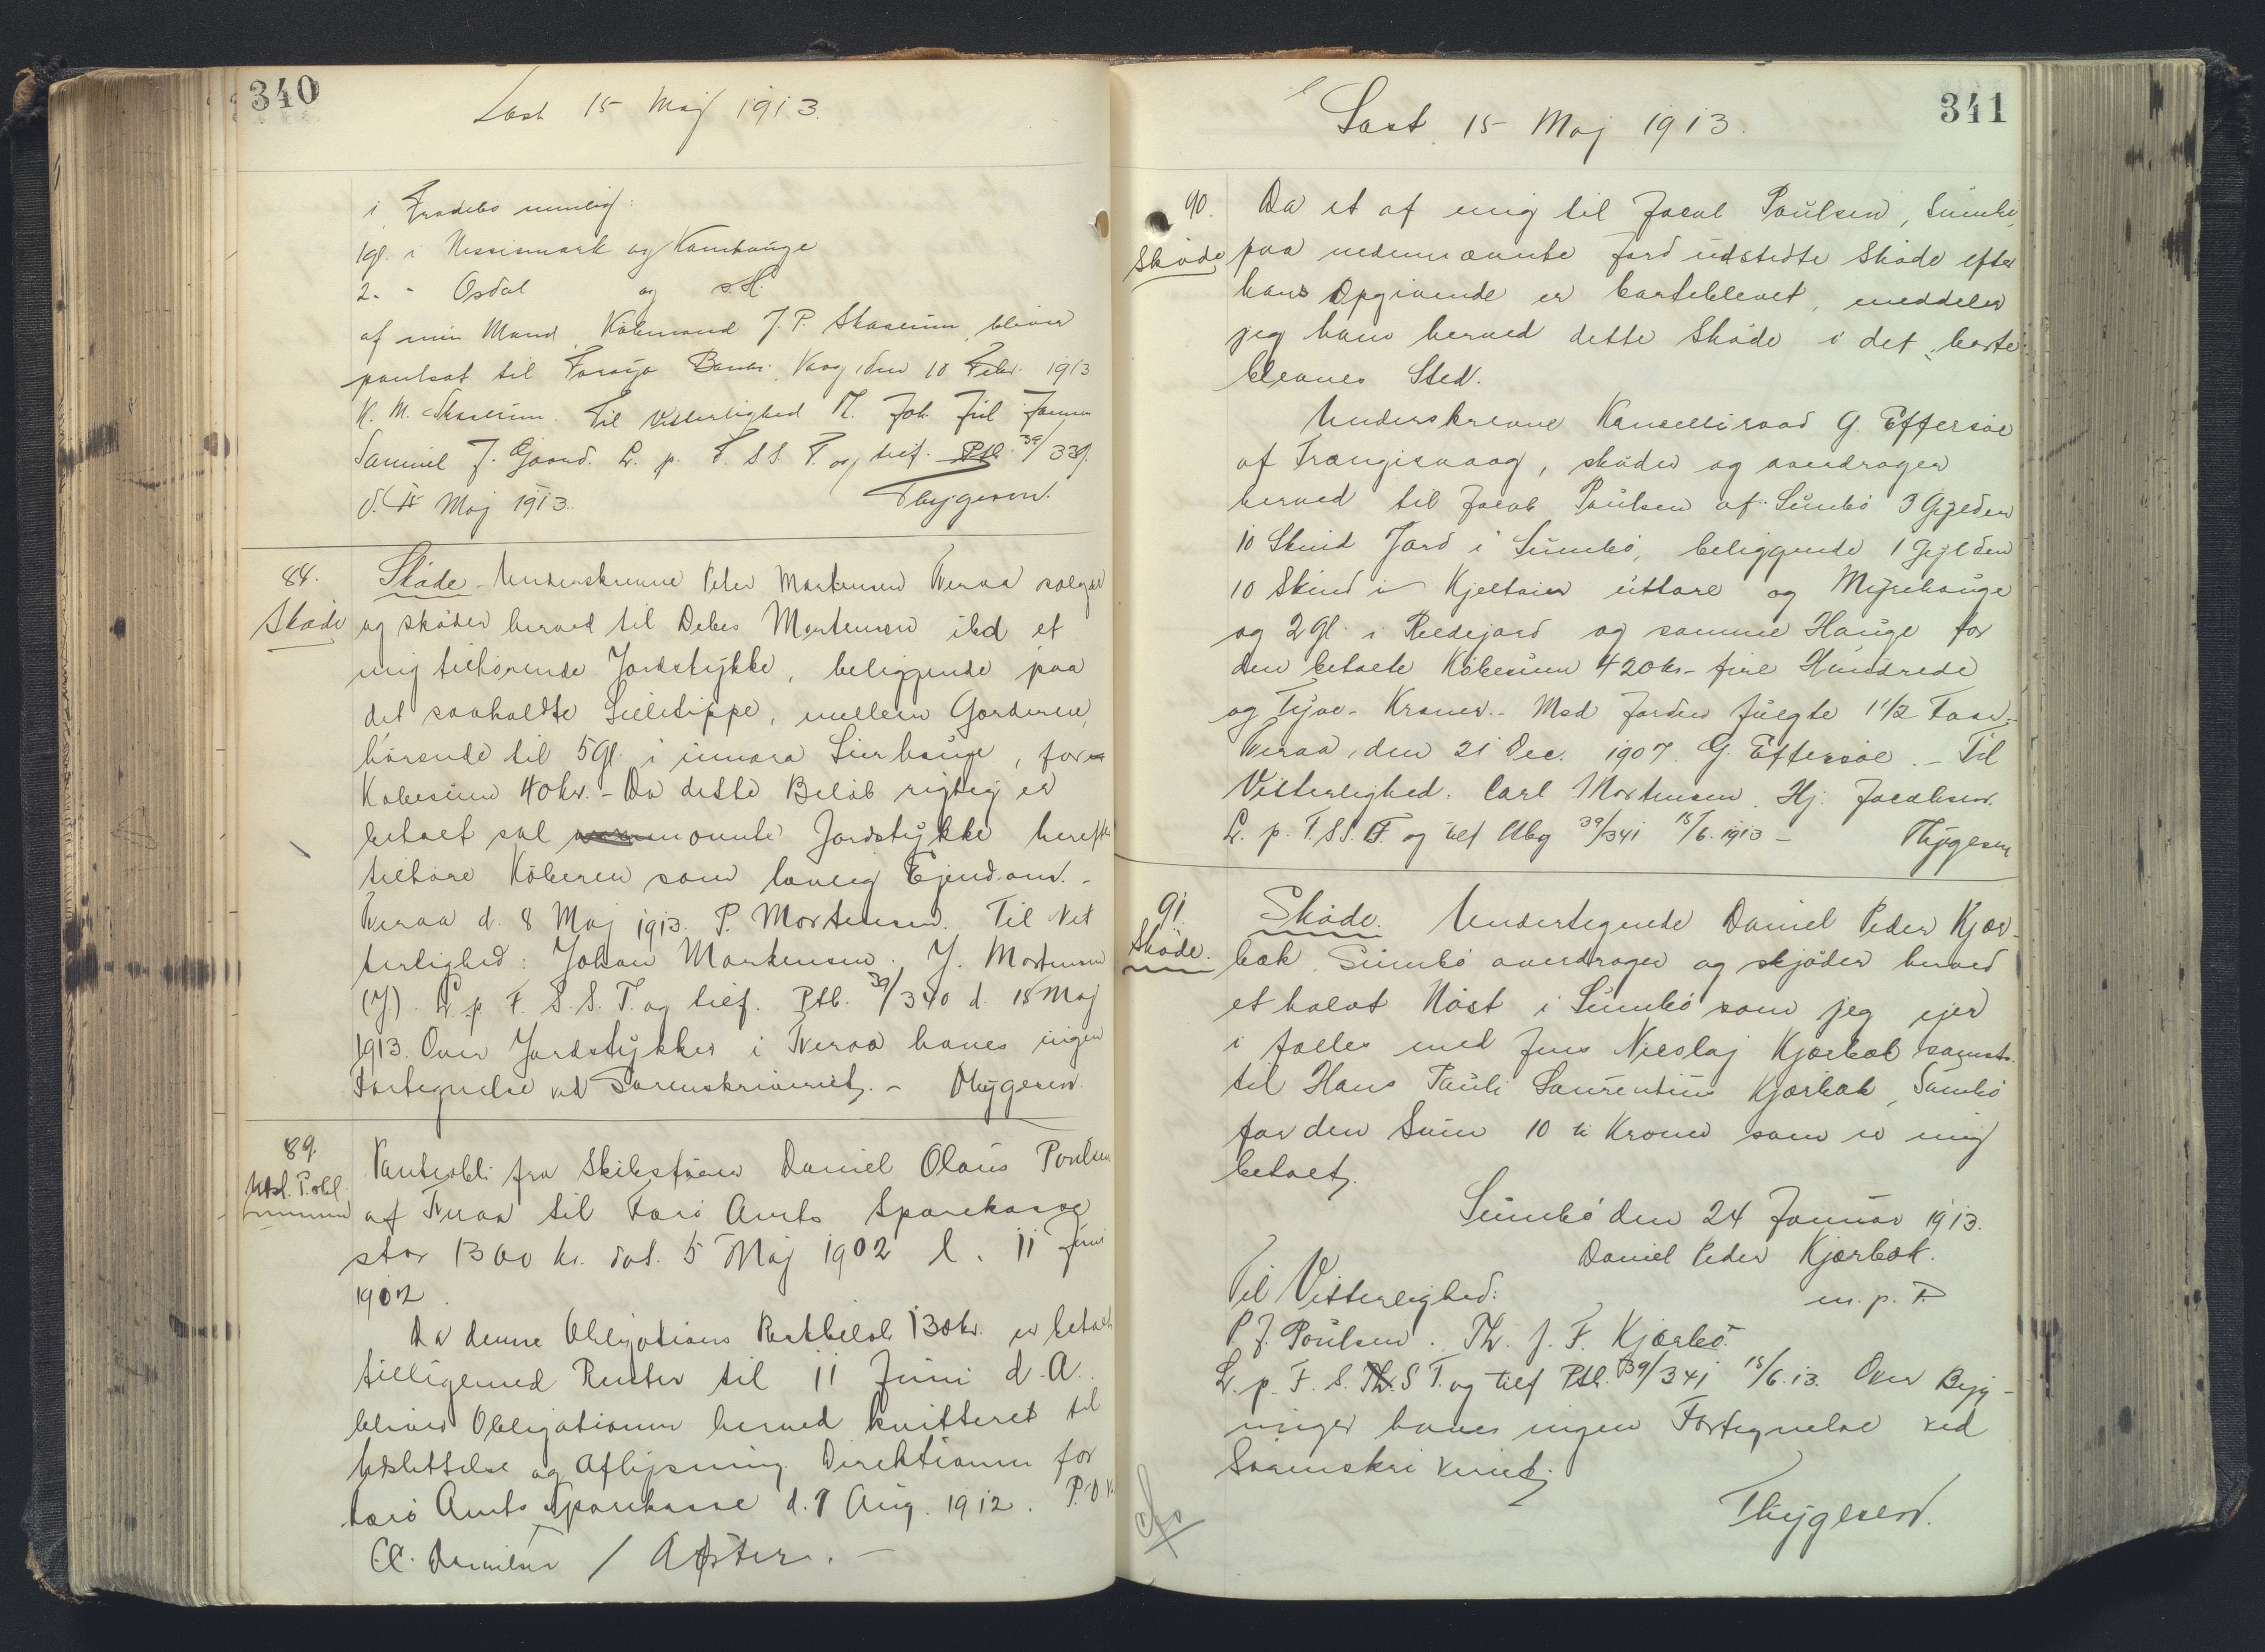 340
Læst 15 Maj 1913.
i Frodebö nemlig:
1 gl. i Nessismark og Kambhauge
2 - - Osdal og s. H.
af min Mand, Købmand J. P. Skaseim, bliver
pantsat til Færøya Banki. Vaag, den 10 Febr. 1913
K. M. Skaseim. Til Vitterlighed Joh. Jul
Samuel J. Gaard. L. p. F. S. S. T. og tilf. Ptb. 39/339.
d. 15 Maj 1913. Thygesen.
88. Skøde. Underskrevne Peter Mortensen Kveraa sælger
Skøde og skøder herved til Debes Mortensen ibd et
mig tilhørende Jordstykke, beliggende paa
det saakaldte Lielitippe, mellem Gærderne,
hørende til 5 Gl. i innara Lierhauge, for
Købesum 40 kr. - Da dette Beløb rigtig er
betalt skal omte Jordstykke herefter
tilhøre Køberen som lovlig Ejendom. -
Kveraa d. 8 Maj 1913. P. Mortensen. Til Vit
terlighed: Johan Mortensen. J. Mortensen
(J). L. p. F. S. S. T. og tilf. Ptb. 39/340 d. 15 Maj
1913. Over Jordstykker i Kveraa haves ingen
Fortegnelse ved Sorenskriveriet. - Thygesen.
89. Panteobl. fra Skibsfører Daniel Olaus Poulsen
Utsl. P. obl. af Kveraa til Færø Amts Sparekasse
stor 1300 kr. dat. 5 Maj 1902 l. 11 Juni
1902.
Da denne Obligations Restbeløb 130 kr. er betalt
tilligemed Renter til 11 Juni d. A.
bliver Obligationen herved kvitteret til
Udslettelse og Aflysning. Direktionen for
Færø Amts Sparekasse d. 9 Aug. 1912. P. D. V.
Cl. Danielsen /
341
Læst 15 Maj 1913.
90. Da et af mig til Jacob Poulsen, Sumbö,
Skøde paa nedennævnte Jord udstedte Skøde efter
hans Opgivende er borteblevet, meddeler
jeg ham herved dette Skøde i det borte-
blevnes Sted.
Underskrevne Kancelliraad G. Effersøe
af Trangisvaag, skøder og overdrager
herved til Jacob Poulsen af Sumbö 3 Gylden
10 Skind Jord i Sumbö, beliggende 1 Gylden
10 Skind i Kjeltaier uttare og Myrehauge
og 2 gl. i Reedejard og samme Hauge for
den betalte Købesum 420 kr. - fire Hundrede
og Tyve - Kroner. - Med Jorden fulgte 1 1/2 Faar. -
Kveraa, den 21 Dec. 1907. G. Effersøe. - Til
Vitterlighed: Carl Mortensen. Hj. Jacobsen.
L. p. F. S. S. T. og tilf Abg 39/341 15/6. 1913 - Thygesen
91. Skøde. Undertegnede Daniel Peder Kjær-
Skøde. bæk, Sumbö overdrager og skjøder herved
et halvt Nøst i Sumbö som jeg ejer
i fælles med Jens Nicolaj Kjærbæk samsts.
til Hans Pauli Laurentius Kjærbæk, Sumbö
for den Sum 10 ti Kroner som er mig
betalt.
Sumbö den 24 Januar 1913.
Daniel Peder Kjærbæk.
Til Vitterlighed: m. p. F.
P. J. Poulsen. Th. J. F. Kjærbö.
L. p. F. S. S. T. og tilf Ptb. 39/341 15/6. 13. Over Byg-
ninger haves ingen Fortegnelse ved
Sorenskriveriet.
Thygesen.